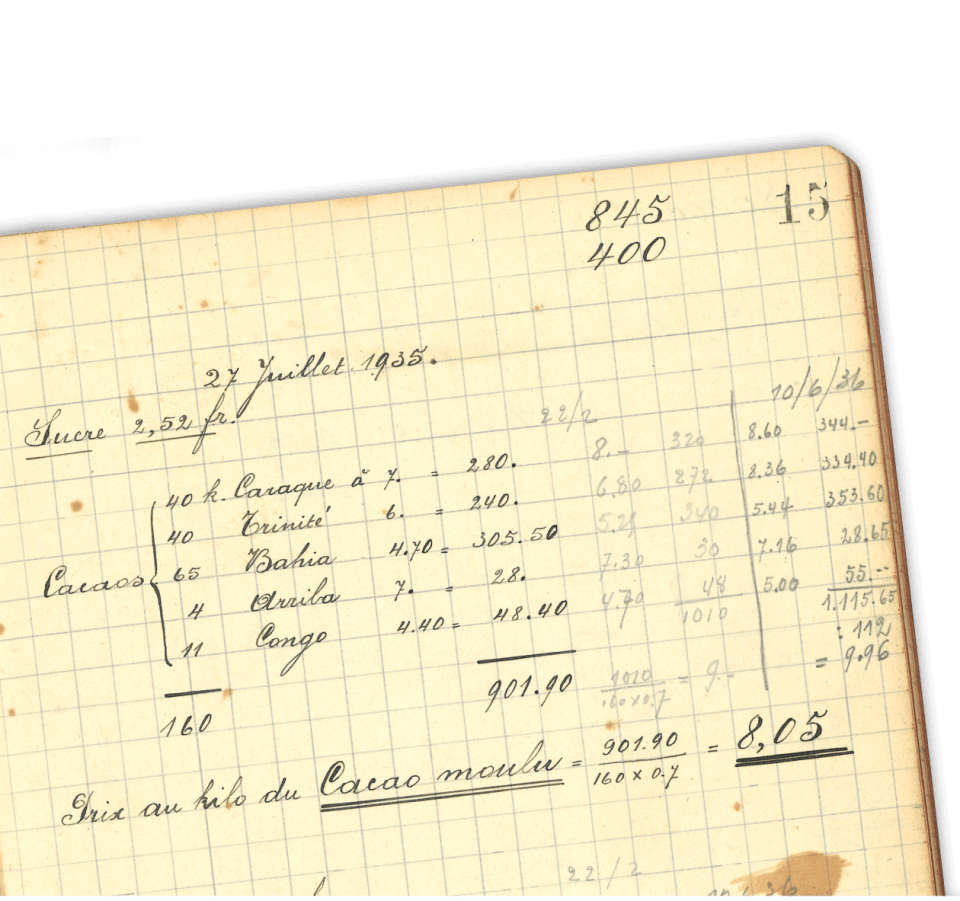 845 15
400
27 Juillet 1935.
Sucre 2,52 fr.
22/2 10/6/36
40 k. Caraque à 7. = 280. 8.- 320 8.60 344.-
40 Trinité 6. = 240. 6.80 272 8.36 334.40
Cacaos 65 Bahia 4.70 = 305.50 340 5.44 353.60
4 Arriba 7. = 28. 7.30 30 7.16 28.65
11 Congo 4.40 = 48.40 48 5.00 55.--
1010 1.115.65
: 112
160 901.90 1010 / 160 x 0.7 = 9.- = 9.96
Prix au kilo du Cacao moulu = 901.90 / 160 x 0.7 = 8,05
22/2